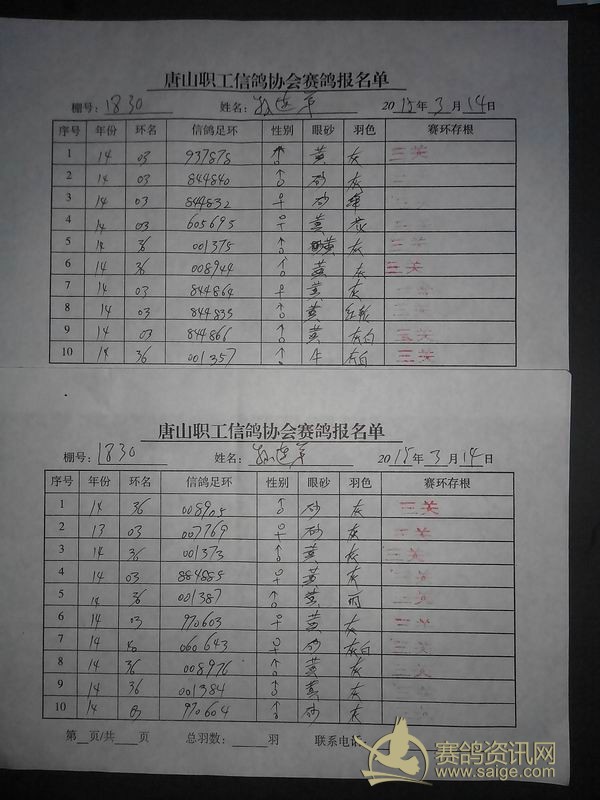 唐山职工信鸽协会赛鸽报名单
棚号: 1830 姓名: 2015年3月14日
序号 年份 环名 信鸽足环 性别 眼砂 羽色 赛环存根
1 14 03 937875 ♂ 黄 灰 三关
2 14 03 844840 ♂ 砂 灰
3 14 03 844832 ♀ 砂
4 14 03 605695 ♀ 黄
5 14 36 001375 ♂ 黄 灰 三关
6 14 36 008944 ♂ 黄 灰 三关
7 14 03 844864 ♀ 黄 灰
8 14 03 844835 ♂ 黄 红轮
9 14 03 844866 ♂ 黄 灰白 三关
10 14 36 001357 ♂ 牛 灰白 三关
唐山职工信鸽协会赛鸽报名单
棚号: 1830 姓名: 2015年3月14日
序号 年份 环名 信鸽足环 性别 眼砂 羽色 赛环存根
1 14 36 008905 ♂ 砂 灰 三关
2 13 03 007769 ♀ 砂 灰 三关
3 14 36 001373 ♂ 黄 灰 三关
4 14 03 884885 ♀ 黄 灰
5 14 36 001387 ♂ 黄 雨
6 14 03 970603 ♀ 黄 灰 三关
7 14 060643 ♀ 砂 灰白 三关
8 14 36 008976 ♂ 黄 灰 三关
9 14 36 001384 ♂ 黄 灰
10 14 03 970604 ♂ 砂 灰
第 页/共 页 总羽数: 羽 联系电话:
赛鸽资讯网
www.saige.com